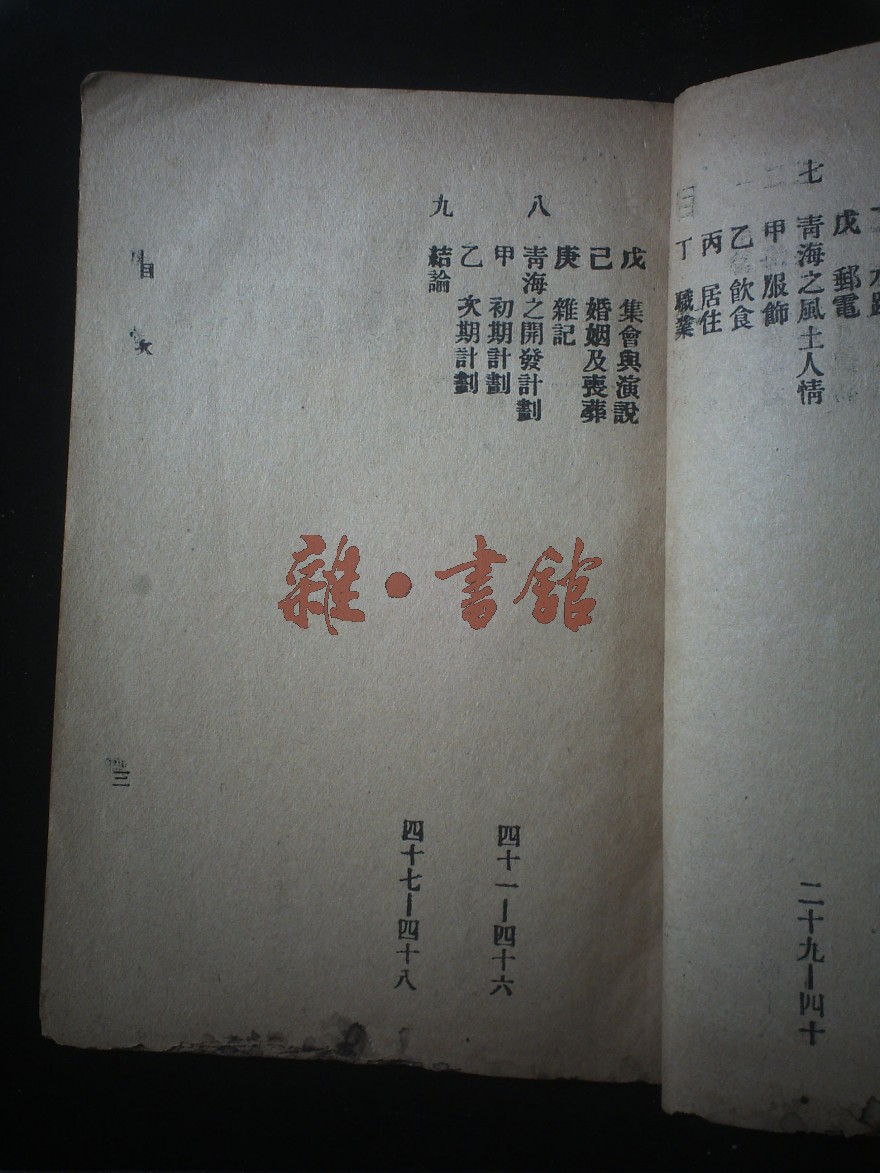 戊　郵電
七　青海之風土人情　二十九—四十
甲　服飾
乙　飲食
丙　居住
丁　職業
戊　集會與演說
己　婚姻及喪葬
庚　雜記
八　青海之開發計劃　四十一—四十六
甲　初期計劃
乙　次期計劃
九　結論　四十七—四十八
目次　三
雜•書館